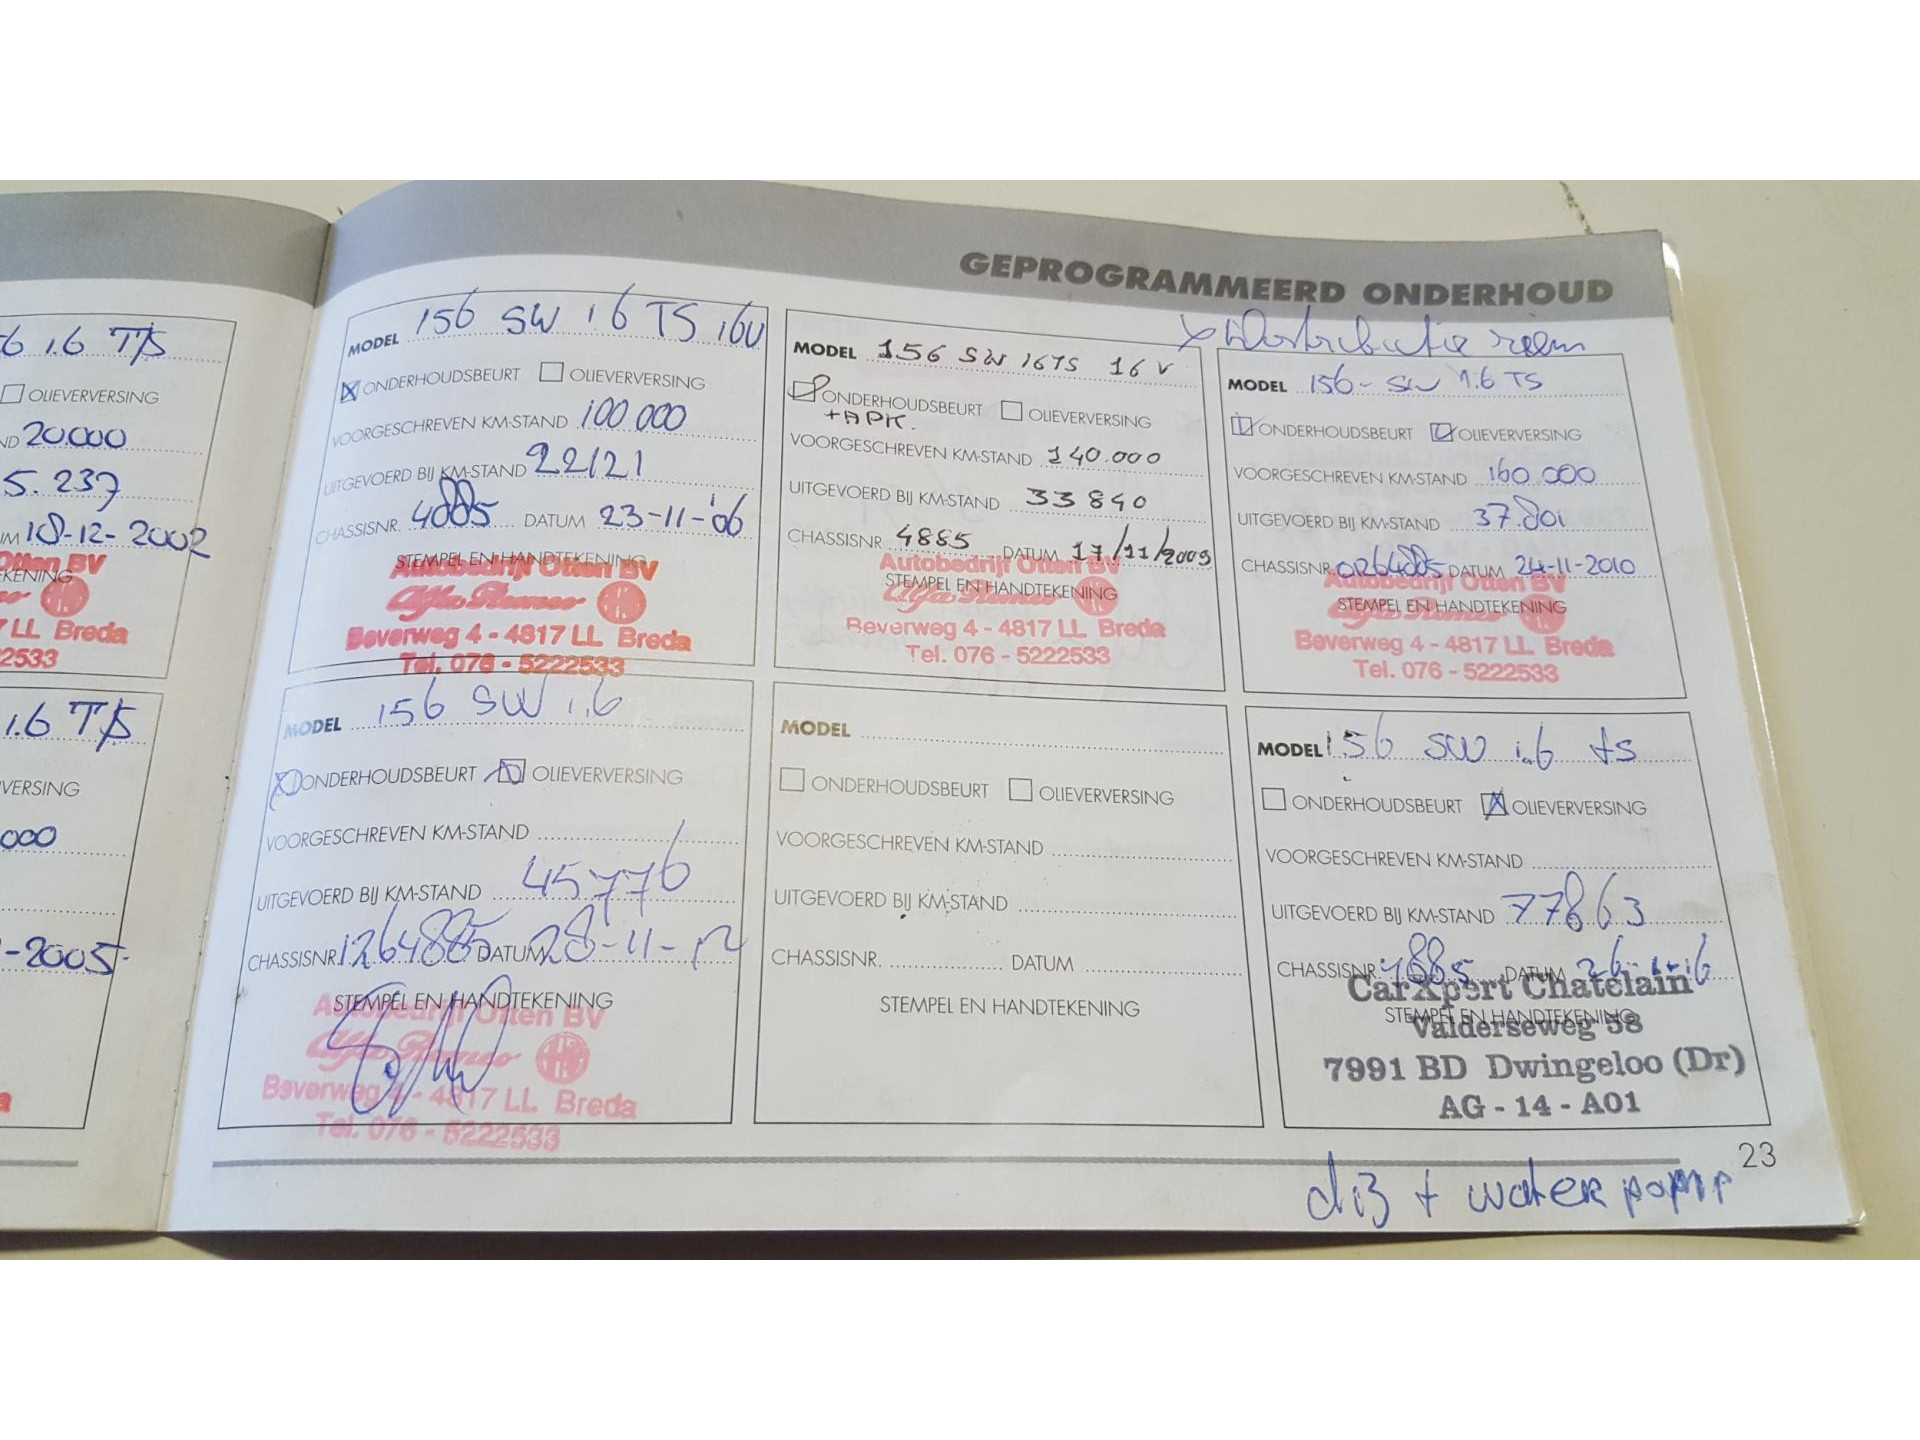 6 1.6 TS
OLIEVERVERSING
20.000
5.237
18-12-2002
Otten BV
LL Breda
2533
1.6 TS
VERSING
000
-2005-
GEPROGRAMMEERD ONDERHOUD
MODEL 156 SW 1.6 TS 16V
ONDERHOUDSBEURT OLIEVERVERSING
VOORGESCHREVEN KM-STAND 100.000
UITGEVOERD BIJ KM-STAND 22121
CHASSISNR. 4885 DATUM 23-11-'06
STEMPEL EN HANDTEKENING
Autobedrijf Otten BV
Alfa Romeo
Beverweg 4 - 4817 LL Breda
Tel. 076 - 5222533
MODEL 156 SW 16TS 16V
ONDERHOUDSBEURT OLIEVERVERSING
+APK.
VOORGESCHREVEN KM-STAND 140.000
UITGEVOERD BIJ KM-STAND 33840
CHASSISNR. 4885 DATUM 17/11/2009
Autobedrijf Otten BV
STEMPEL EN HANDTEKENING
Alfa Romeo
Beverweg 4 - 4817 LL Breda
Tel. 076 - 5222533
x Distributie riem
MODEL 156-SW 1.6 TS
ONDERHOUDSBEURT OLIEVERVERSING
VOORGESCHREVEN KM-STAND 160.000
UITGEVOERD BIJ KM-STAND 37.801
CHASSISNR. 01264885 DATUM 24-11-2010
Autobedrijf Otten BV
STEMPEL EN HANDTEKENING
Alfa Romeo
Beverweg 4 - 4817 LL Breda
Tel. 076 - 5222533
MODEL 156 SW 1.6
ONDERHOUDSBEURT OLIEVERVERSING
VOORGESCHREVEN KM-STAND
UITGEVOERD BIJ KM-STAND 45776
CHASSISNR. 1264885 DATUM 28-11-12
STEMPEL EN HANDTEKENING
Autobedrijf Otten BV
Alfa Romeo
Beverweg 4 - 4817 LL Breda
Tel. 076 - 5222533
MODEL
ONDERHOUDSBEURT OLIEVERVERSING
VOORGESCHREVEN KM-STAND
UITGEVOERD BIJ KM-STAND
CHASSISNR. DATUM
STEMPEL EN HANDTEKENING
MODEL 156 SW 1.6 ts
ONDERHOUDSBEURT OLIEVERVERSING
VOORGESCHREVEN KM-STAND
UITGEVOERD BIJ KM-STAND 77863
CHASSISNR. 4885 DATUM
CarXpert Chatelain
STEMPEL EN HANDTEKENING
Valderseweg 38
7991 BD Dwingeloo (Dr)
AG - 14 - A01
23
+ waterpomp